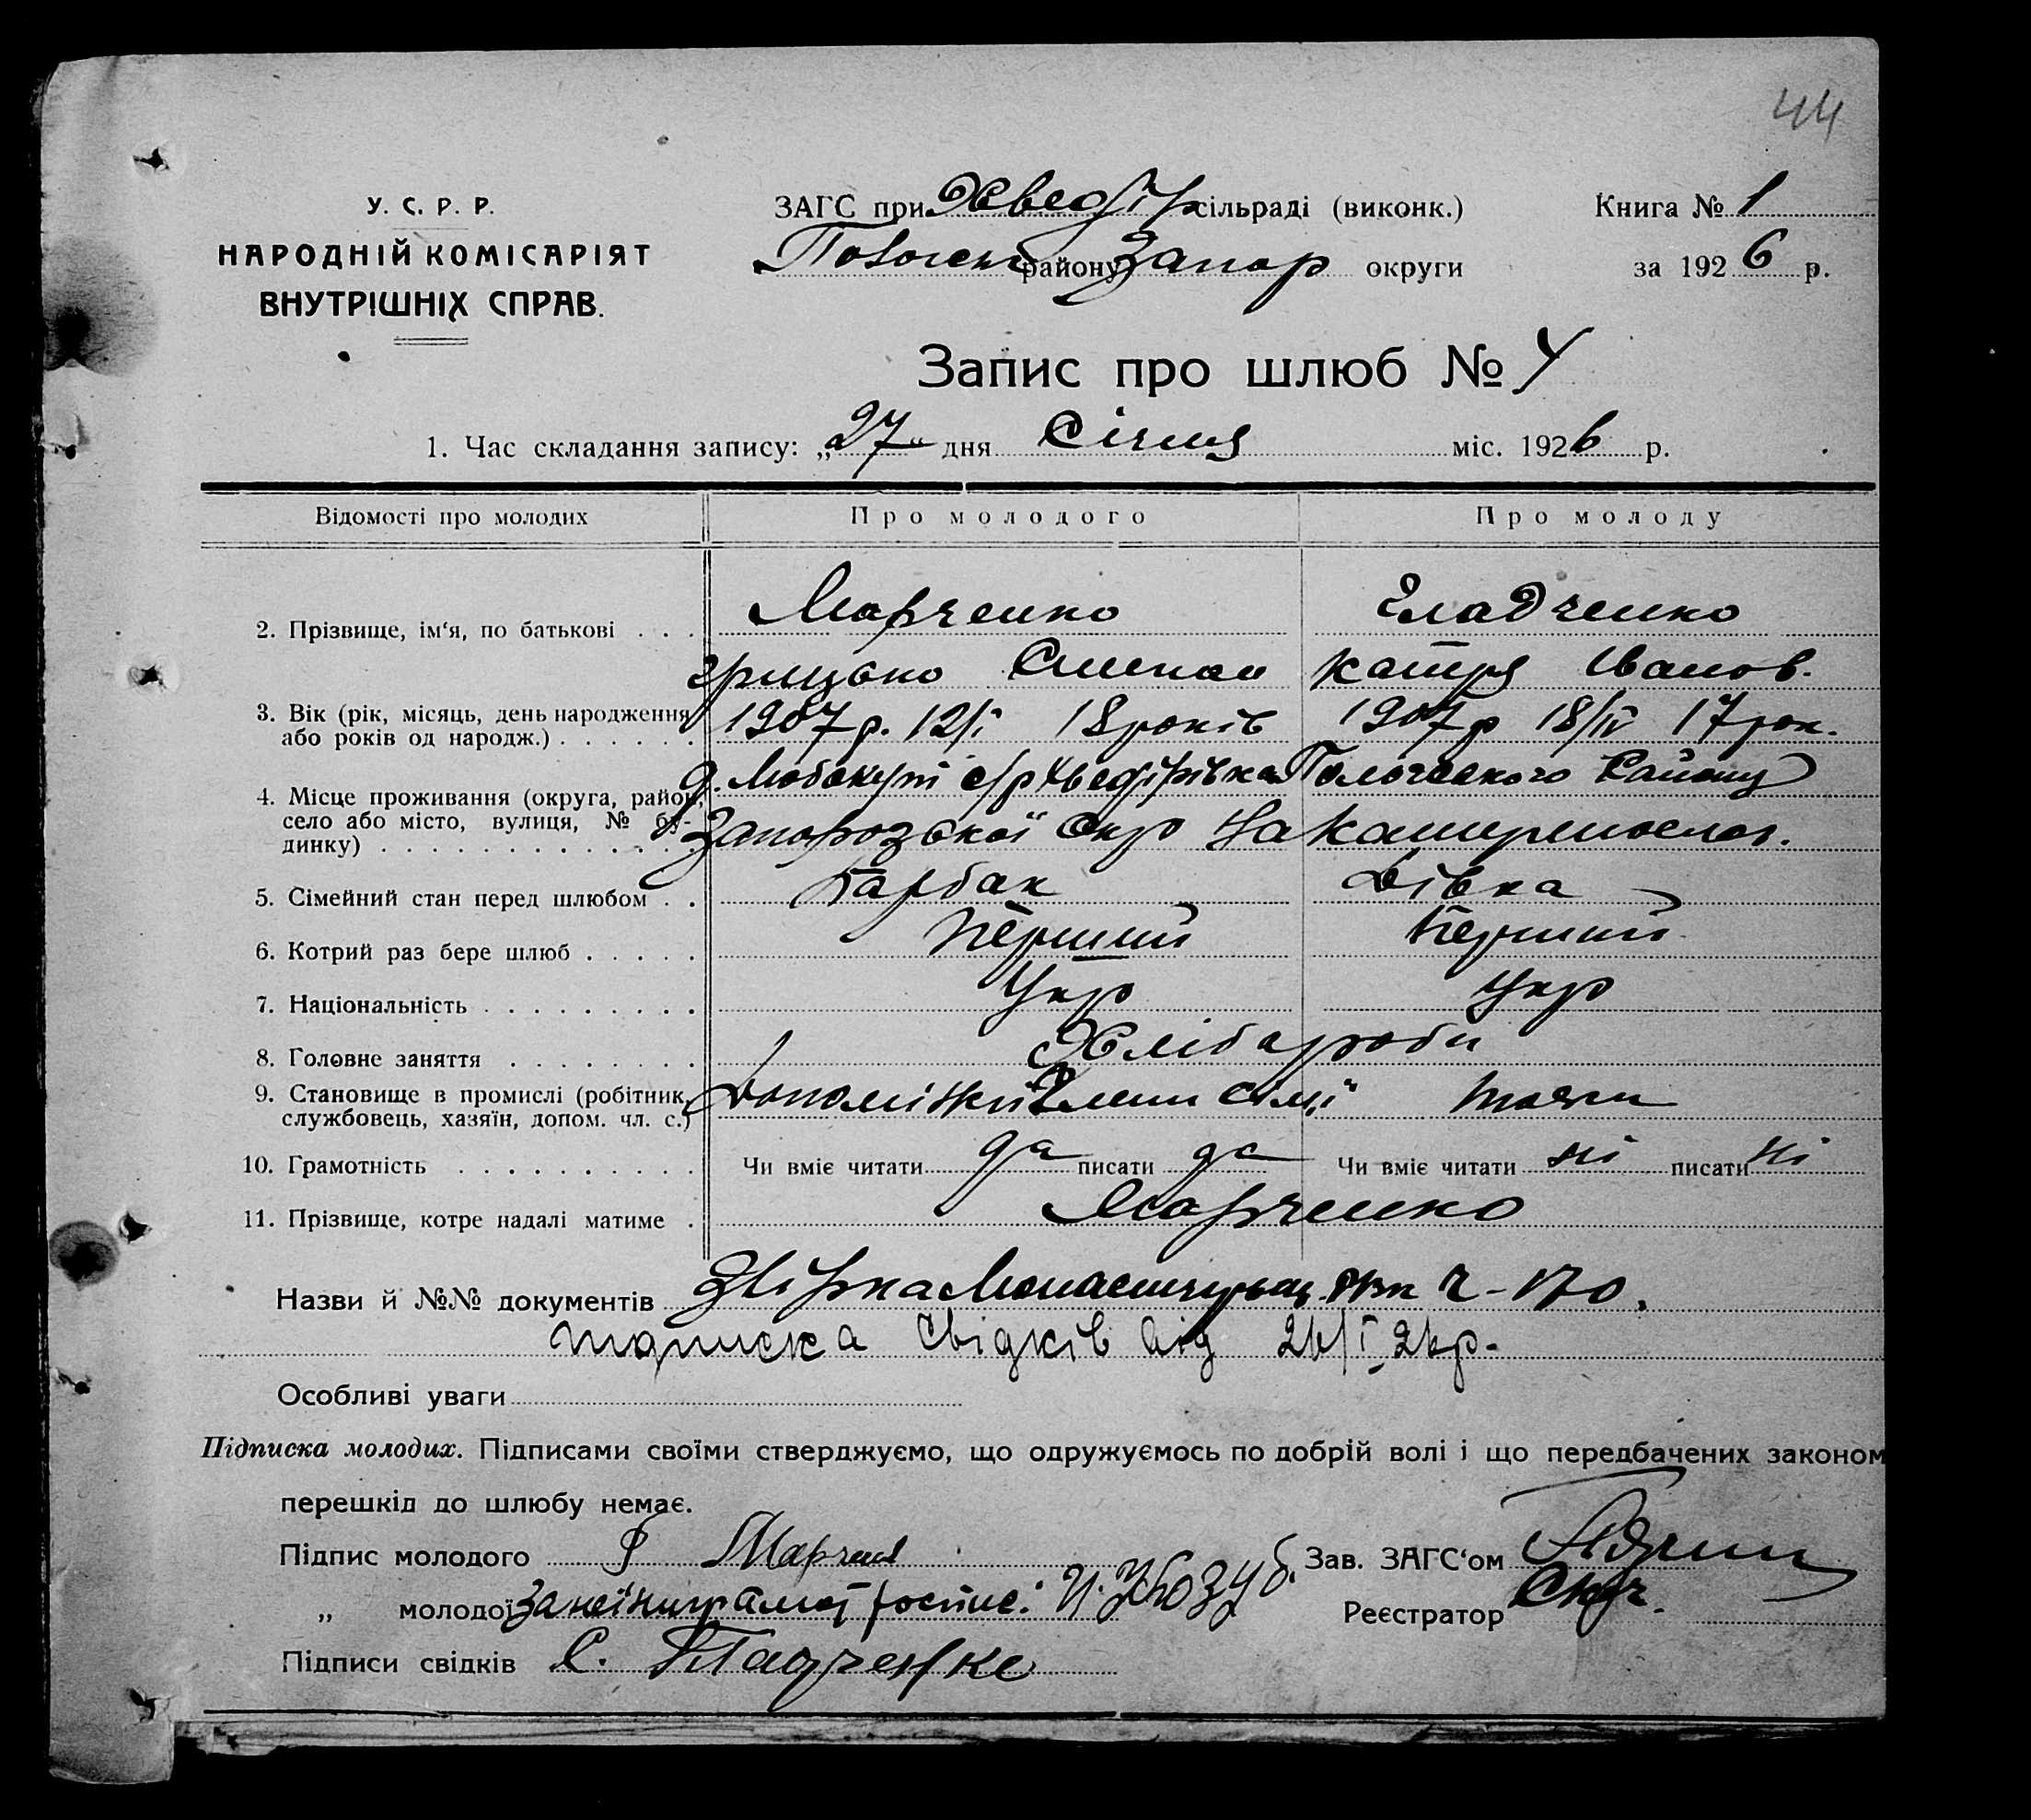 44
У. С. Р. Р.
НАРОДНІЙ КОМІСАРІЯТ
ВНУТРІШНІХ СПРАВ.
ЗАГС при Хведір сільраді (виконк.)
району Запор округи
Книга № 1
за 1926 р.
Запис про шлюб № 4
1. Час складання запису: „27“ дня Січня міс. 1926 р.
Відомості про молодих Про молодого Про молоду
2. Прізвище, ім‘я, по батькові . . . Марченко Гладченко
Грицько Степан Катря Іванов.
3. Вік (рік, місяць, день народження або років од народж.) . . . . . . 1907 р. 12/I 18 років 1907 р 18/IV 17 рок.
4. Місце проживання (округа, район, село або місто, вулиця, № будинку) . . . . . . . . . . . . Любокут с/р Хведірівка Пологського Району
Запорозької Окр На Катеринослав.
5. Сімейний стан перед шлюбом . . Парбак Дівка
6. Котрий раз бере шлюб . . . . . Перший Перший
7. Національність . . . . . . . . . Укр Укр
8. Головне заняття . . . . . . . . Хлібароби
9. Становище в промислі (робітник, службовець, хазяїн, допом. чл. с.) Допоміжний член сімї
10. Грамотність . . . . . . . . . . Чи вміє читати да писати да Чи вміє читати ні писати ні
11. Прізвище, котре надалі матиме . Марченко
Назви й №№ документів РВК Ч-170.
підписка свідків від 26/I 26р.
Особливі уваги
Підписка молодих. Підписами своїми стверджуємо, що одружуємось по добрій волі і що передбачених законом
перешкід до шлюбу немає.
Підпис молодого Г Марчен
Зав. ЗАГС‘ом
„ молодої за неї
Реєстратор
Підписи свідків